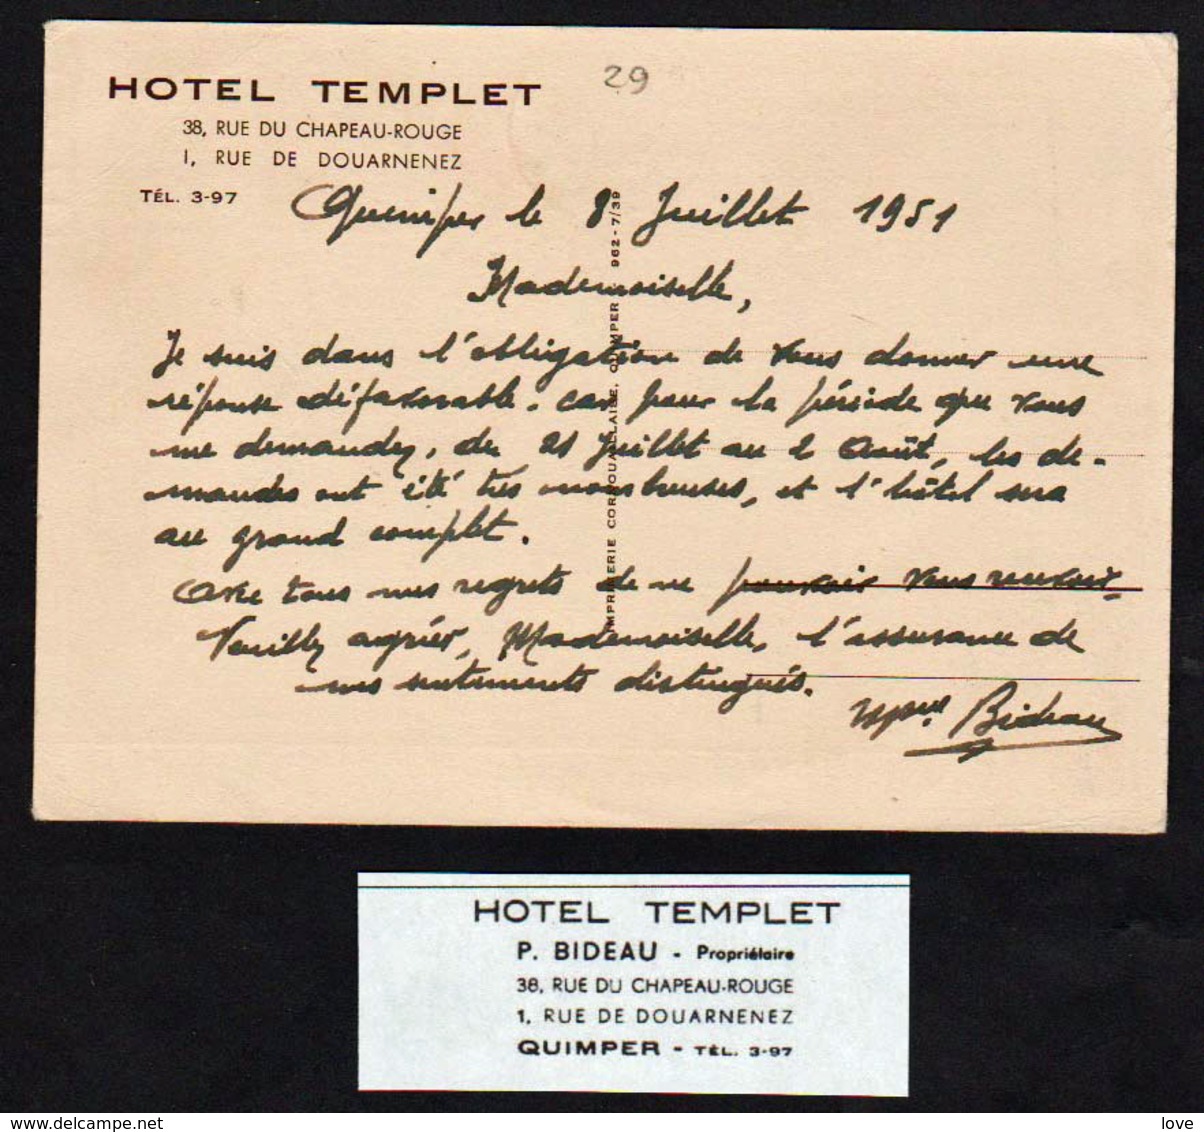 HOTEL TEMPLET
29
38, RUE DU CHAPEAU-ROUGE
1, RUE DE DOUARNENEZ
TÉL. 3-97
Quimper le 8 Juillet 1951
Mademoiselle,
Je suis dans l'obligation de vous donner une
réponse défavorable. car pour la période que vous
me demandez, du 21 Juillet au 2 Août, les de-
mandes ont été très nombreuses, et l'hôtel sera
au grand complet.
Avec tous mes regrets de ne pouvoir vous recevoir
Veuillez agréer, Mademoiselle, l'assurance de
mes sentiments distingués.
Bideau
IMPRIMERIE CORNOUAILLAISE, QUIMPER 962-7/39
HOTEL TEMPLET
P. BIDEAU - Propriétaire
38, RUE DU CHAPEAU-ROUGE
1, RUE DE DOUARNENEZ
QUIMPER - TÉL. 3-97
love love